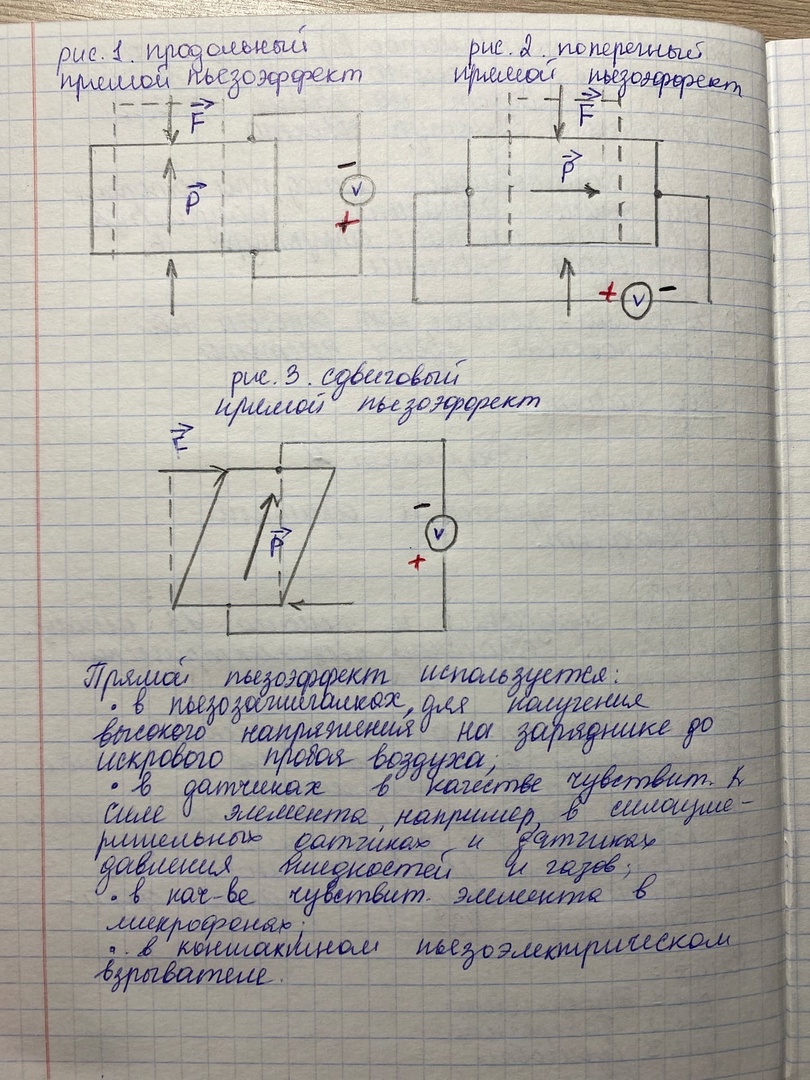 рис. 1. продольный
прямой пьезоэффект
F
P
−
V
+
рис. 2. поперечный
прямой пьезоэффект
F
P
+ V −
рис. 3. сдвиговый
прямой пьезоэффект
F
P
−
V
+
Прямой пьезоэффект используется:
• в пьезозажигалках, для получения
высокого напряжения на заряднике до
искрового пробоя воздуха;
• в датчиках в качестве чувствит. к
силе элемента, например, в силоизме-
рительных датчиках и датчиках
давления жидкостей и газов;
• в кач-ве чувствит. элемента в
микрофонах;
• в контактном пьезоэлектрическом
взрывателе.